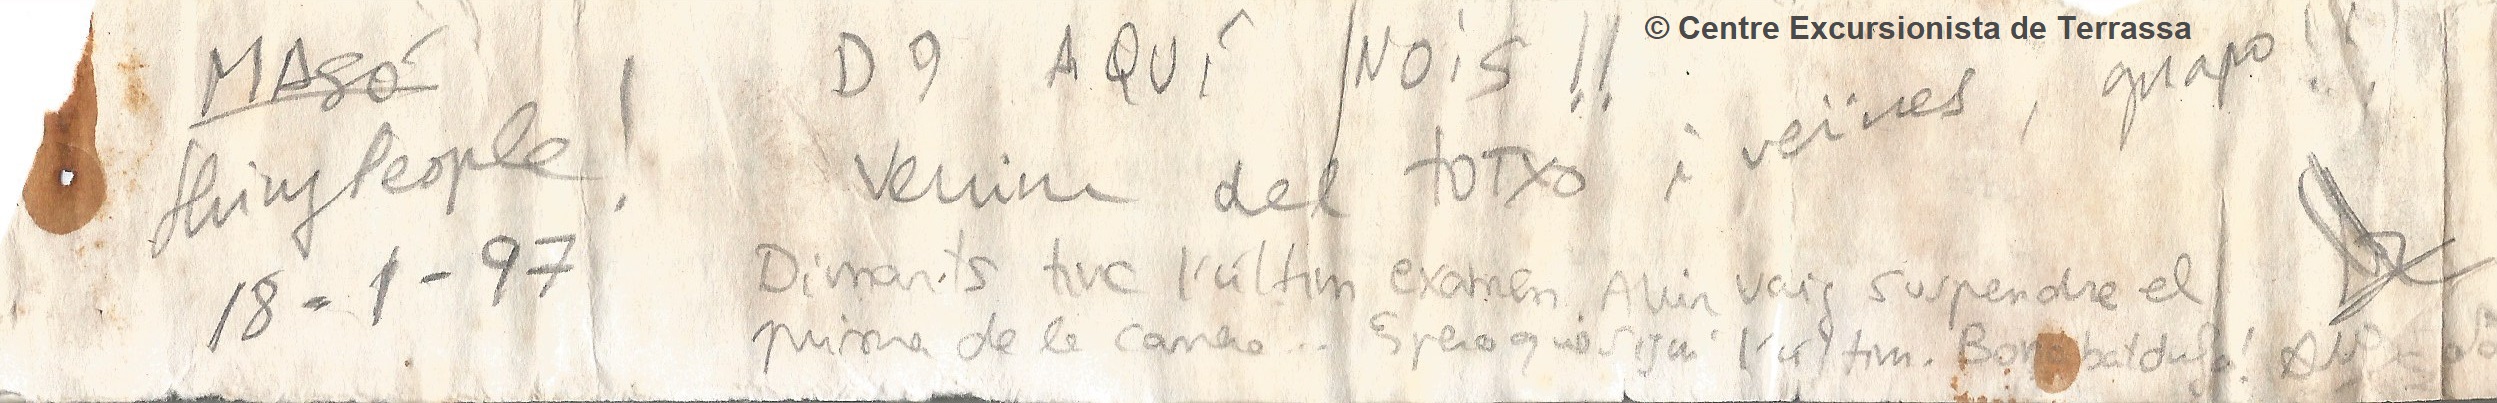 © Centre Excursionista de Terrassa
MASÓ
thing People!
18-1-97
D9 AQUÍ NOIS!!
Venim del TOTXO i veïnes, guapo!!
Dimarts tinc l'últim examen Ahir vaig suspendre el
primer de la carrera... Espero que sigui l'últim. Bona baixada!